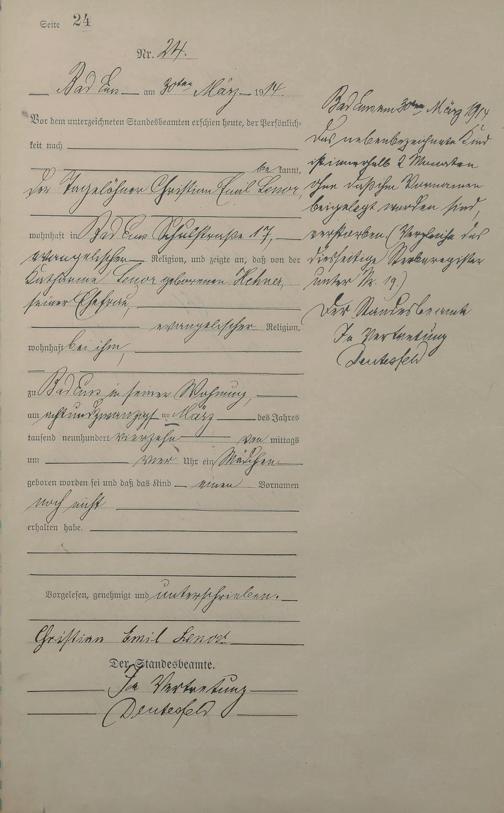 Seite 24
Nr. 24.
Bad Ems am 30ten März 1914.
Vor dem unterzeichneten Standesbeamten erschien heute, der Persönlich-
keit nach
be kannt,
der Tagelöhner Christian Emil Lenor,
wohnhaft in Bad Ems Schulstraße 17,
evangelischer Religion, und zeigte an, daß von der
Katharina Lenor geborenen Hehner,
seiner Ehefrau,
evangelischer Religion,
wohnhaft bei ihm,
zu Bad Ems in seiner Wohnung,
am achtundzwanzigsten März des Jahres
tausend neunhundert vierzehn vor mittags
um vier Uhr ein Mädchen
geboren worden sei und daß das Kind einen Vornamen
noch nicht
erhalten habe.
Vorgelesen, genehmigt und unterschrieben.
Christian Emil Lenor
Der Standesbeamte.
In Vertretung
Bad Ems am 30ten März 1914
Das nebenbezeichnete Kind
ist innerhalb 2 Monaten
ohne daß ihm Vornamen
beigelegt worden sind,
verstorben (Vergleiche das
diesseitige Sterberegister
unter Nr. 19)
Der Standesbeamte
In Vertretung